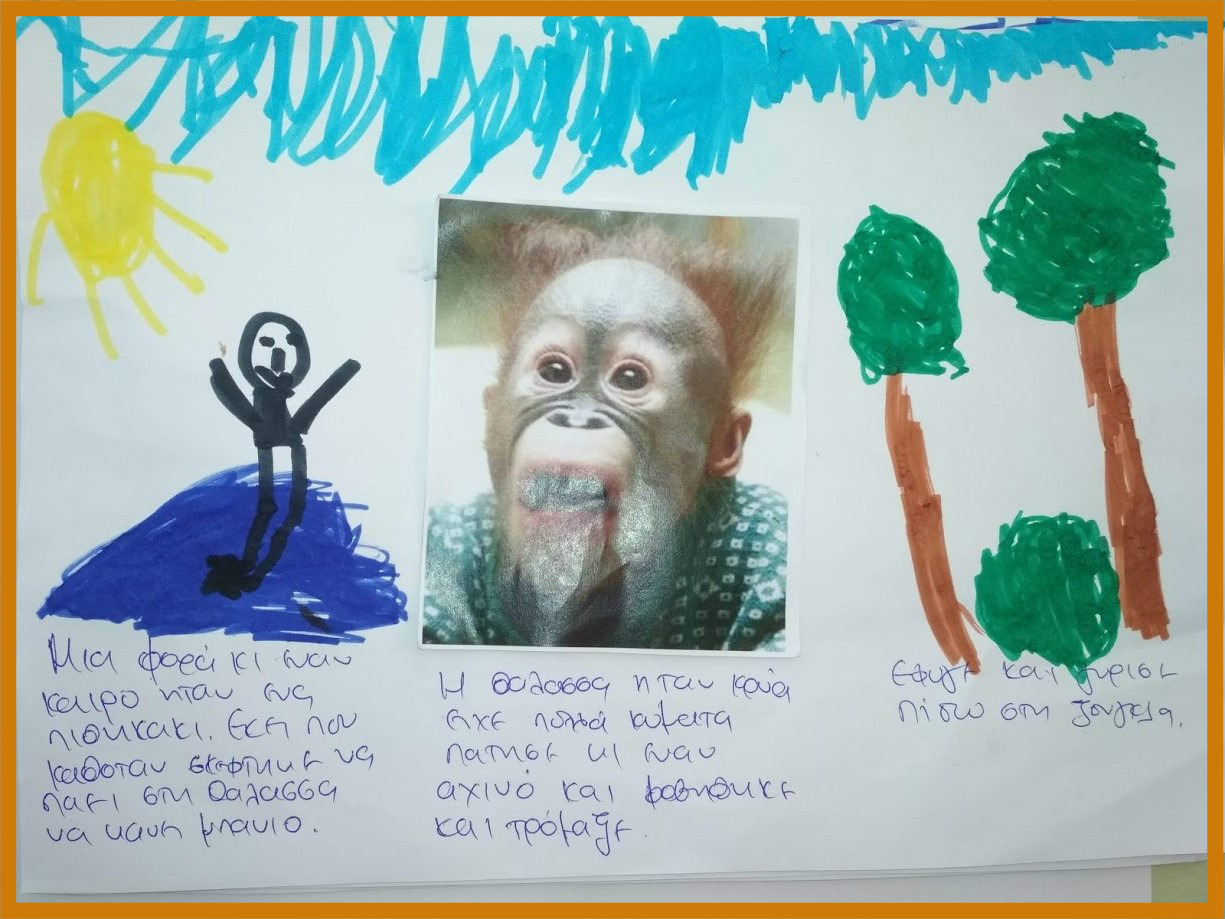 Μια φορά κι εναν
καιρο ηταν ενα
πιθηκακι. Εκει που
καθοταν σκεφτηκε να
παει στη θαλασσα
να κανει μπανιο.
Η θαλασσα ηταν κρύα
ειχε πολλά κύματα
πατησε κι εναν
αχινό και φοβηθηκε
και τρόμαξε.
Εφυγε και γυρισε
πίσω στη ζουγκλα.